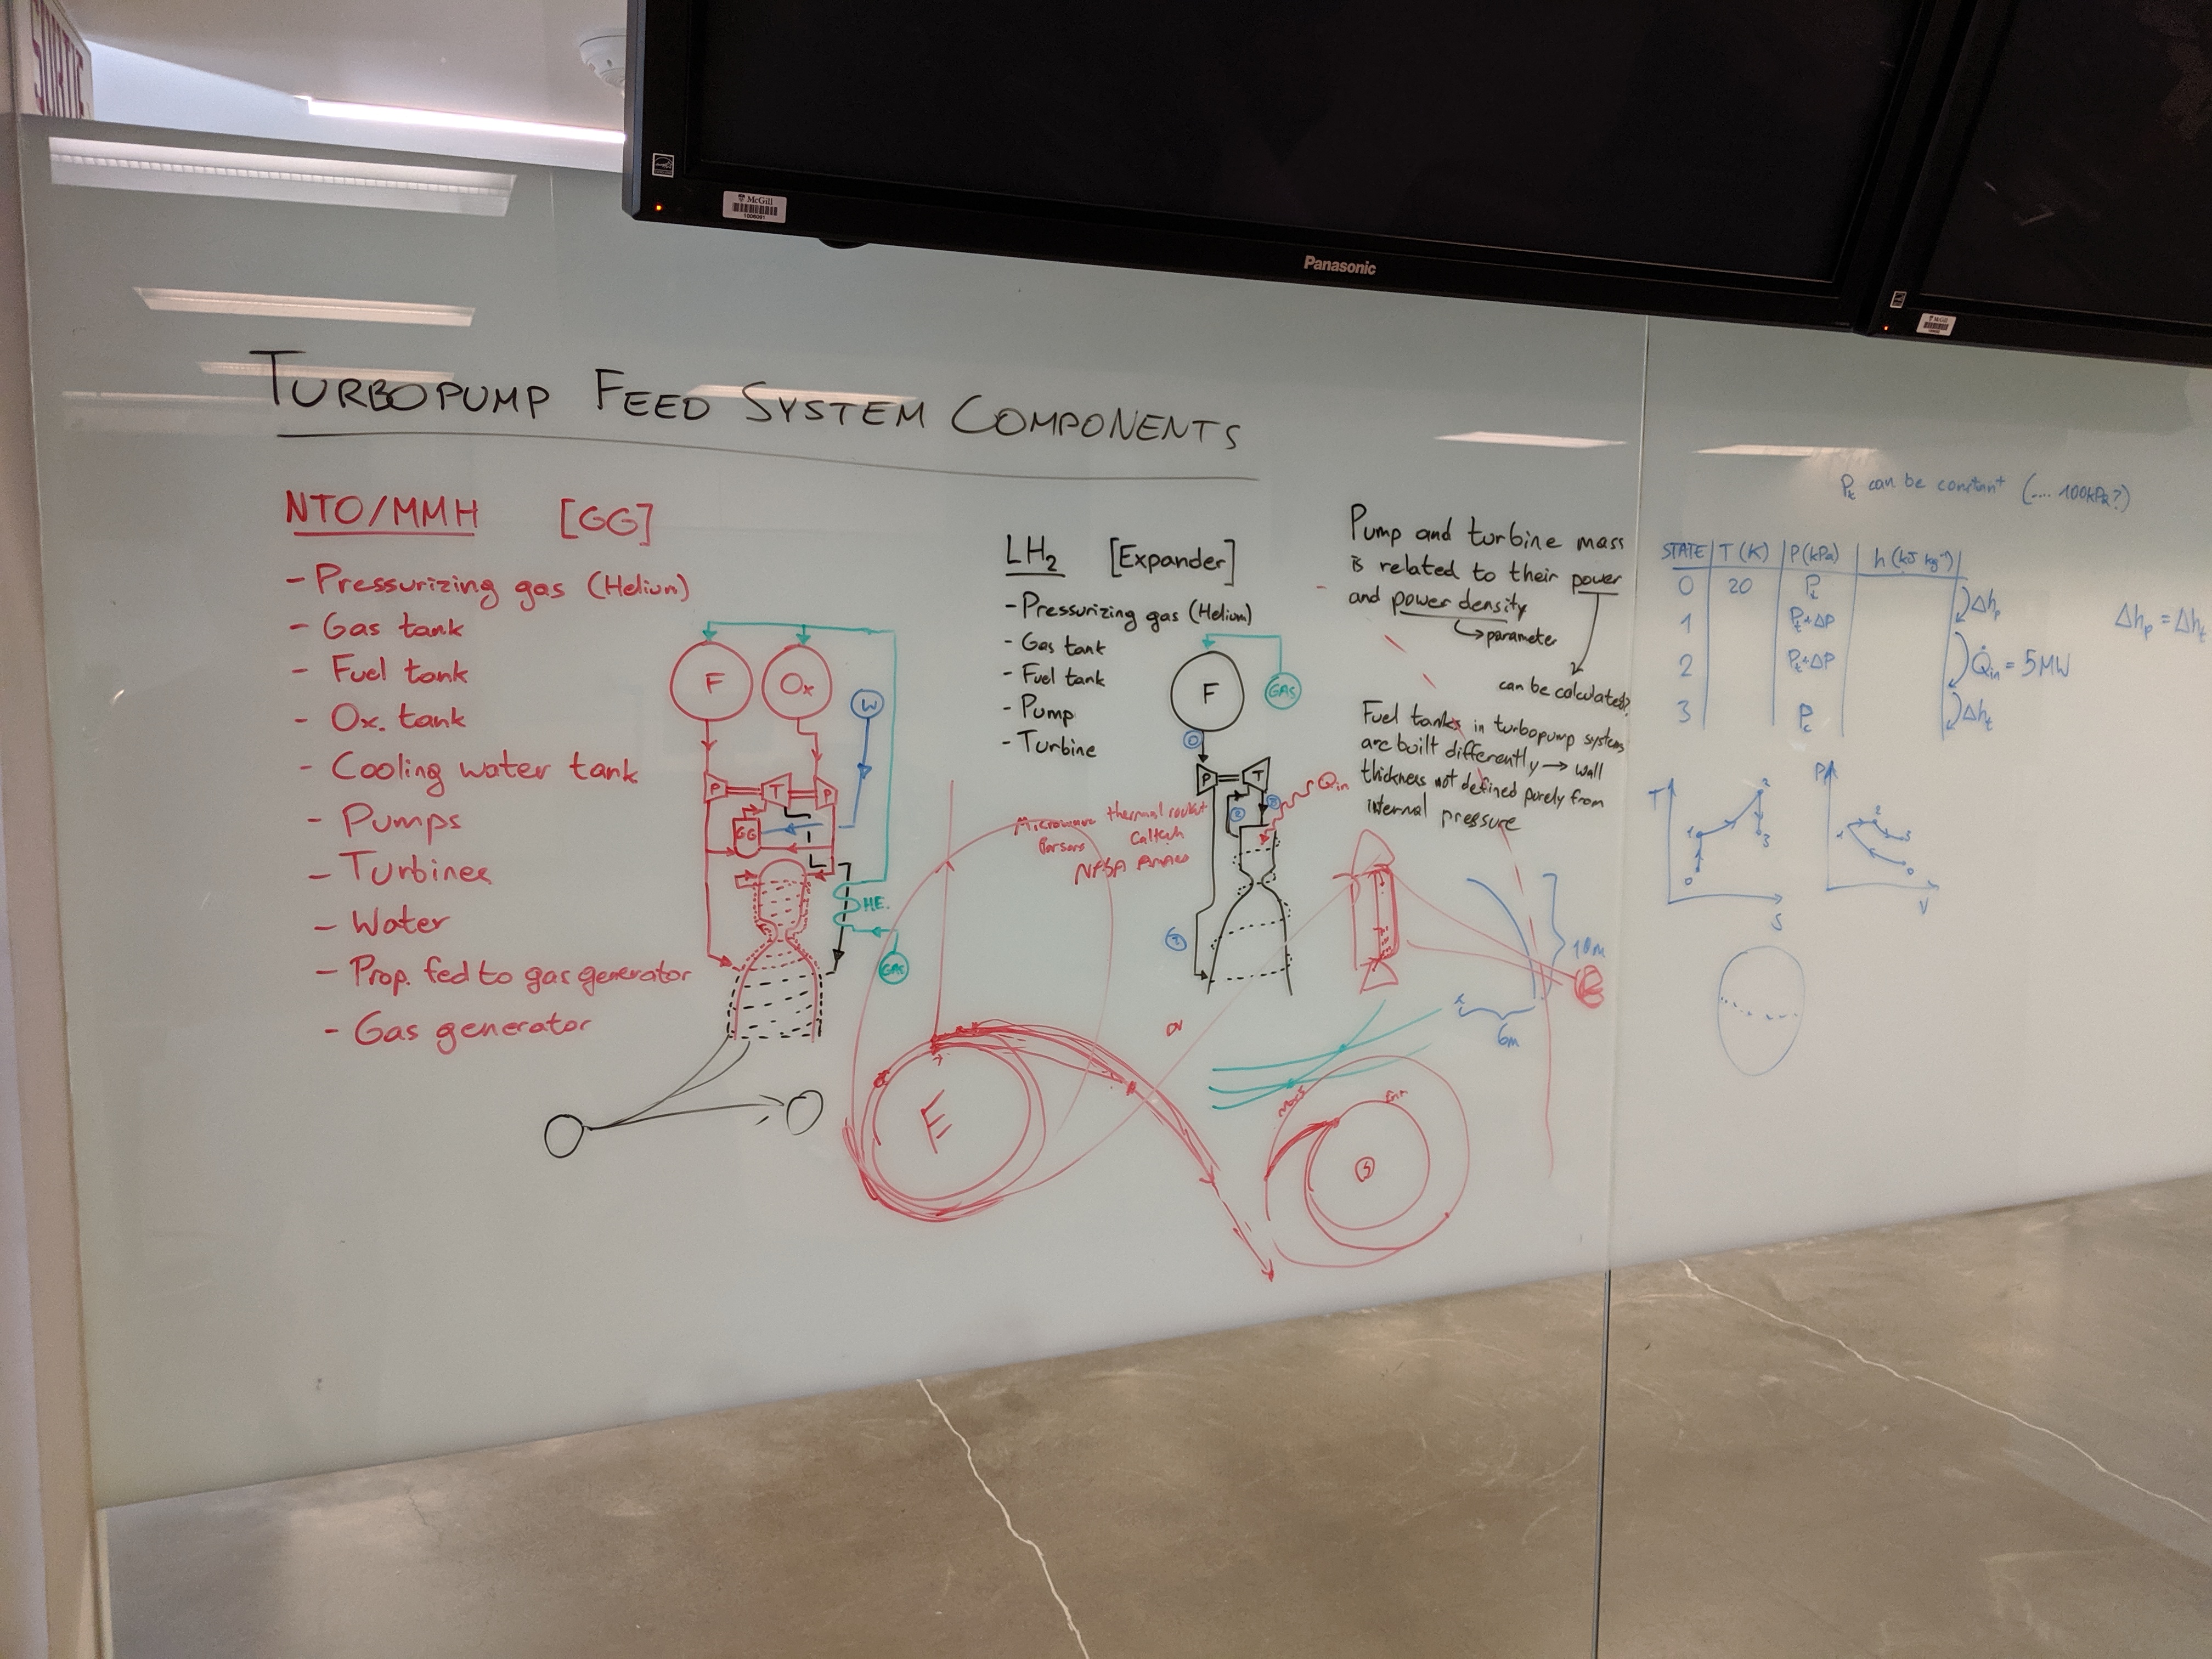 SORTIE
McGill
Panasonic
McGill
TURBOPUMP FEED SYSTEM COMPONENTS
NTO/MMH [GG]
- Pressurizing gas (Helium)
- Gas tank
- Fuel tank
- Ox. tank
- Cooling water tank
- Pumps
- Turbines
- Water
- Prop. fed to gas generator
- Gas generator
F
Ox
W
P
T
P
GG
HE.
GAS
LH2 [Expander]
- Pressurizing gas (Helium)
- Gas tank
- Fuel tank
- Pump
- Turbine
F
GAS
0
P
T
Qin
2
Microwave thermal rocket
Caltech
Parsons
NASA
E
Pump and turbine mass
is related to their power
and power density
↳ parameter
can be calculated?
Fuel tanks in turbopump systems
are built differently → wall
thickness not defined purely from
internal pressure
10m
6m
DV
S
Pt can be constant (.... 100kPa?)
STATE T (K) P (kPa) h (kJ kg⁻¹)
0 20 Pt
Δhp
1 Pt+ΔP
2 Pt+ΔP
Q̇in = 5MW
3 Pc
Δht
Δhp = Δht
T
0
1
2
3
S
P
0
1
2
3
V